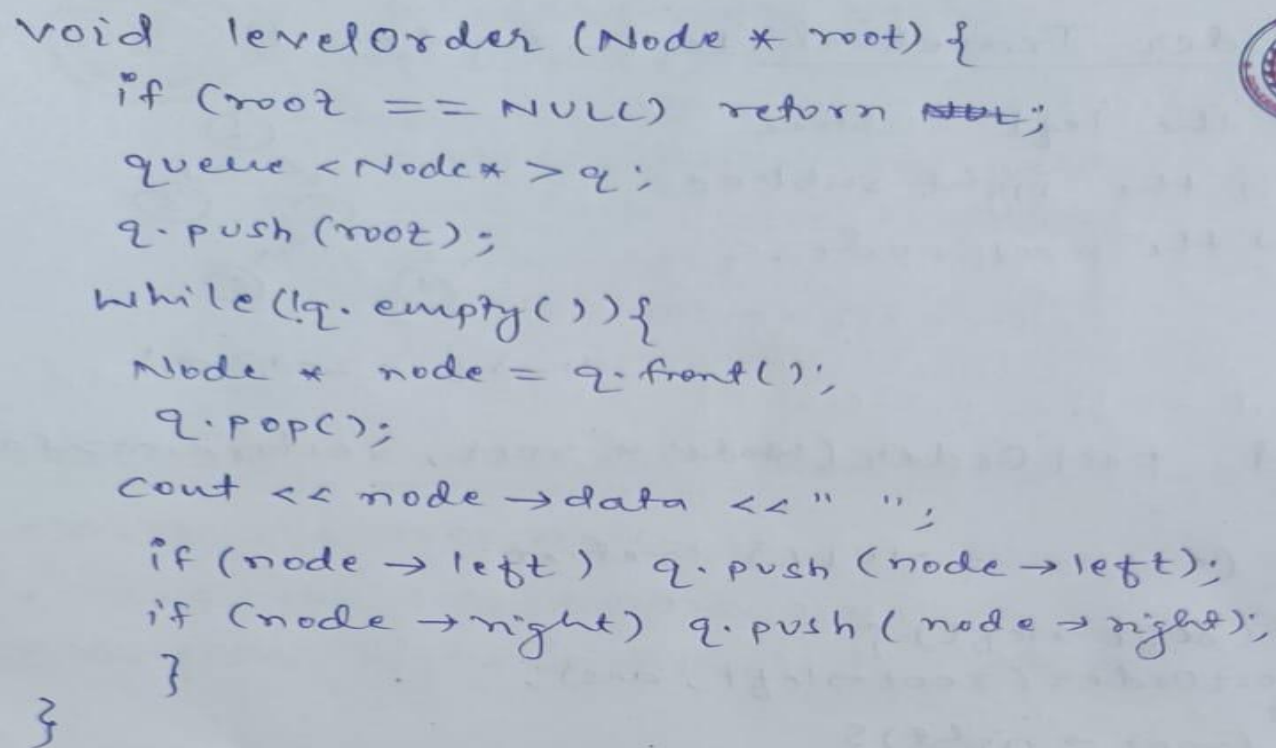 void levelOrder (Node * root) {
if (root == NULL) return ;
queue <Node* > q;
q.push (root);
while (!q.empty()){
Node * node = q.front();
q.pop();
cout << node → data << " ";
if (node → left) q.push (node → left);
if (node → right) q.push (node → right);
}
}